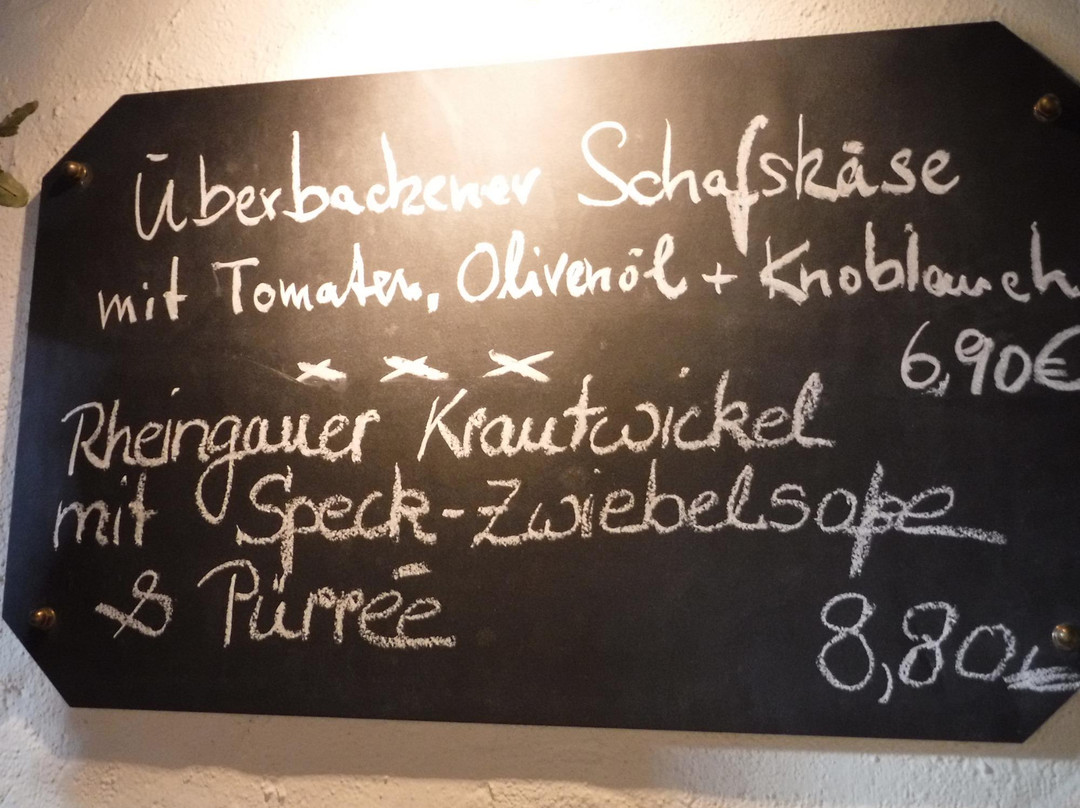 Überbackener Schafskäse
mit Tomaten, Olivenöl + Knoblauch
6,90€
x x x
Rheingauer Krautwickel
mit Speck-Zwiebelsoße
& Pürrée
8,80